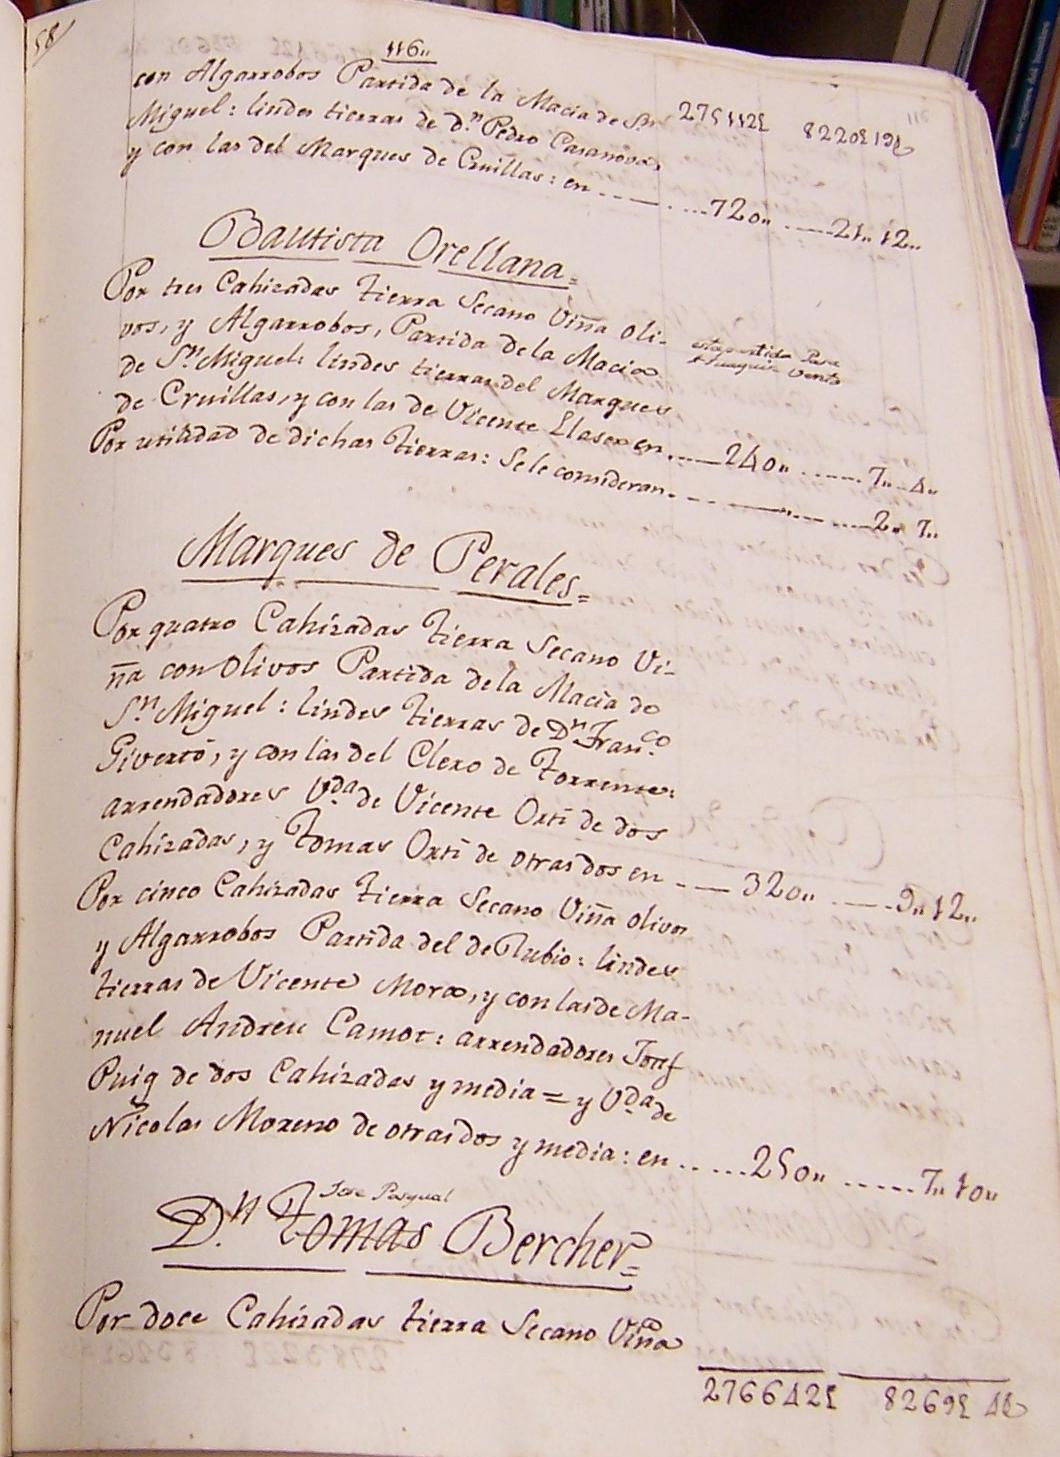 58
116"
con Algarrobos Partida de la Macia de Sn 275112£ 8220£19£
Miguel: lindes tierras de D.n Pedro Casanova,
y con las del Marques de Cruillas: en ---- . ....720" .----21" 12"
Bautista Orellana=
Por tres Cahizadas tierra Secano Viña oli-
vos, y Algarrobos, Partida de la Macia
esta partida Pasa
de Sn Miguel: lindes tierras del Marques
de Cruillas, y con las de Vicente Llaser en ....240" ......7" 4"
Por utilidad de dichas tierras: Se le consideran ---- " ----2" 7"
Marques de Perales=
Por quatro Cahizadas tierra Secano Vi-
ña con Olivos Partida de la Macia de
Sn Miguel: lindes tierras de Dn Franco
Givertó, y con las del Clero de Torrente:
arrendadores Vda de Vicente Orti de dos
Cahizadas, y Tomas Orti de otras dos en ----320" ----9" 12"
Por cinco Cahizadas tierra Secano Viña olivos
y Algarrobos Partida del de Rubio: lindes
tierras de Vicente Mora, y con las de Ma-
nuel Andreu Camot: arrendadores Josef
Puig de dos Cahizadas y media = y Vda de
Nicolas Moreno de otras dos y media: en .....250" .....7" 10"
Jose Pasqual
D.n Tomas Bercher=
Por doce Cahizadas tierra Secano Viña
276642£ 8269£ 4£